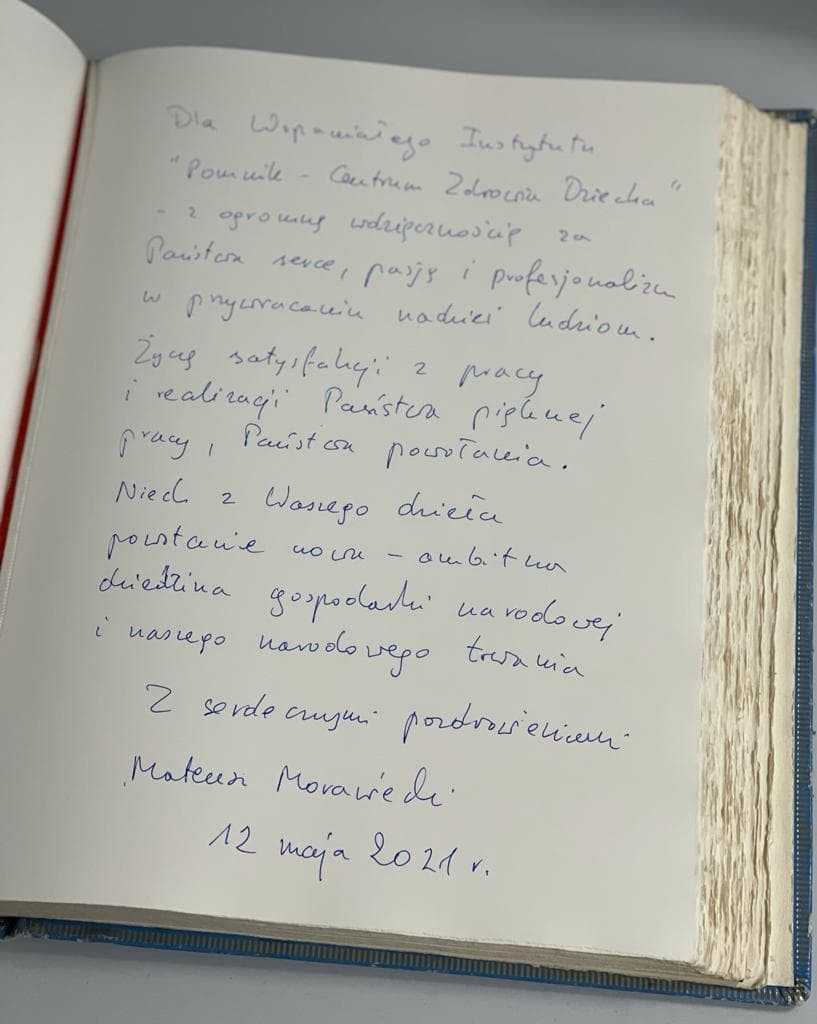 Dla Wspaniałego Instytutu
"Pomnik - Centrum Zdrowia Dziecka"
- z ogromną wdzięcznością za
Państwa serce, pasję i profesjonalizm
w przywracaniu nadziei ludziom.
Życzę satysfakcji z pracy
i realizacji Państwa pięknej
pracy, Państwa powołania.
Niech z Waszego dzieła
powstanie nowa - ambitna
dziedzina gospodarki narodowej
i naszego narodowego trwania
Z serdecznymi pozdrowieniami
Mateusz Morawiecki
12 maja 2021 r.